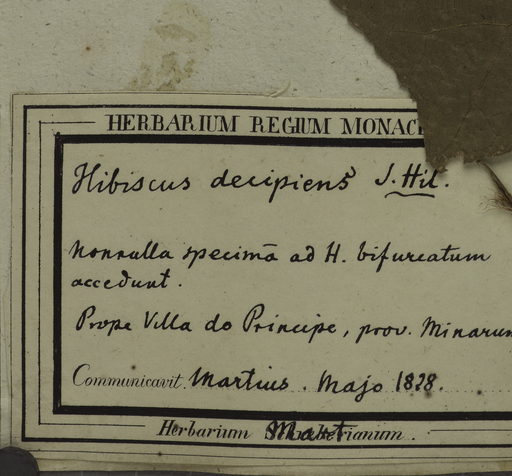 HERBARIUM REGIUM MONAC
Hibiscus decipiens S. Hil.
Nonnulla specimā ad H. bifurcatum
accedunt.
Prope Villa do Principe, prov. Minarum
Communicavit. Martius. Majo 1828.
Herbarium Mart